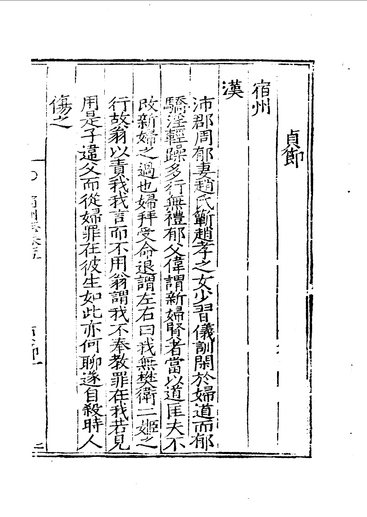 貞節
宿州
漢
沛郡周郁妻趙氏蘄趙孝之女少習儀訓閑於婦道而郁
驕淫輕躁多行無禮郁父偉謂新婦賢者當以道匡夫不
改新婦之過也婦拜受命退謂左右曰我無樊衛二姬之
行故翁以責我我言而不用翁謂我不奉教罪在我若見
用是子違父而從婦罪在彼生如此亦何聊遂自殺時人
傷之